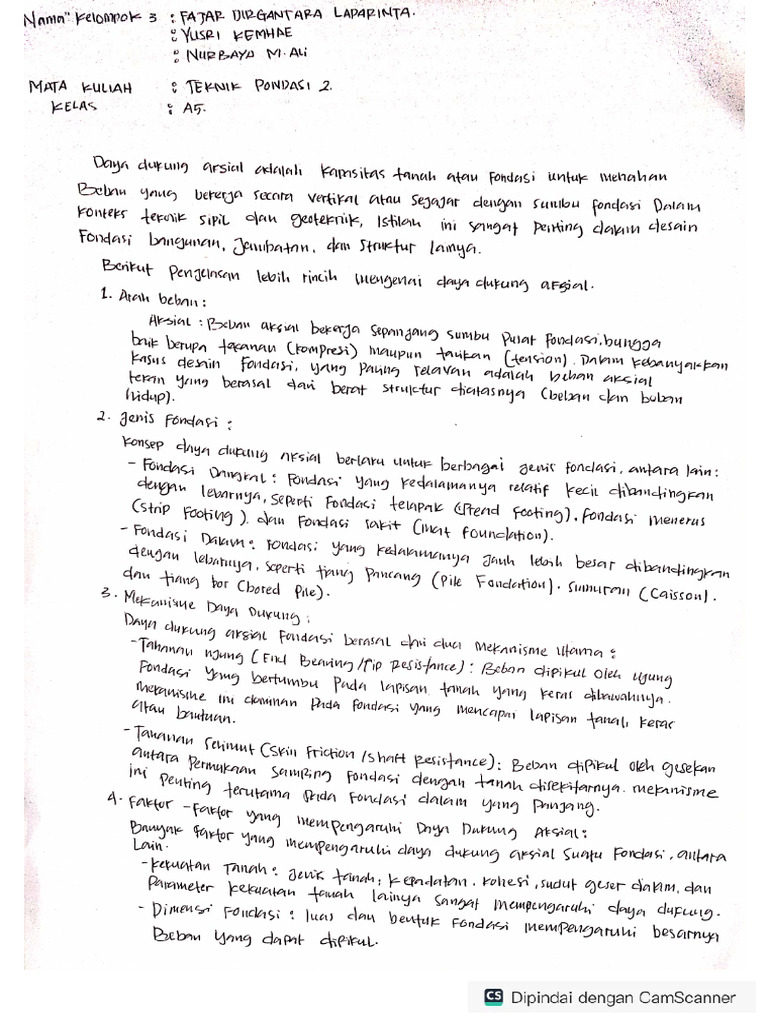 Nama" Kelompok 3 : FAJAR DIRGANTARA LADARINTA.
: YUSRI KEMHAE
: NURBAYD M. ALI
MATA KULIAH : TEKNIK PONDASI 2.
KELAS : A5.
Daya dukung arsial adalah kapasitas tanah atau fondasi untuk menahan
Beban yang bekerja secara vertikal atau sejajar dengan sumbu fondasi Dalam
konteks teknik sipil dan geoteknik, Istilah ini sangat penting dalam desain
Fondasi bangunan, Jembatan, dan struktur lainya.
Berikut Penjelasan lebih rincih mengenai daya dukung arsial.
1. Arah beban :
Aksial : Beban aksial bekerja sepanjang sumbu pusat fondasi, bungga
baik berupa tekanan (kompresi) maupun tarikan (tension). Dalam kebanyakkan
kasus desain fondasi, yang paling relavan adalah beban aksial
tekan yang berasal dari berat struktur diatasnya (beban dan buban
hidup).
2. Jenis Fondasi :
Konsep daya dukung aksial berlaku untuk berbagai jenis fondasi, antara lain :
- Fondasi Dangkal : Fondasi yang kedalamanya relatif kecil dibandingkan
dengan lebarnya, seperti Fondasi telapak (Spread Footing), fondasi menerus
(Strip Footing), dan Fondasi rakit (mat foundation).
- Fondasi Dalam : Fondasi yang kedalamanya jauh lebih besar dibandingkan
dengan lebarnya, seperti tiang Pancang (Pile Fondation). Sumuran (Caisson).
dan tiang bor (bored Pile).
3. Mekanisme Daya Dukung :
Daya dukung aksial Fondasi berasal dari dua Mekanisme Utama :
- Tahanan ujung (End Bearing/Tip Resistance) : Beban dipikul oleh ujung
Fondasi yang bertumbu pada lapisan tanah yang keras dibawahnya.
Mekanisme ini dominan pada fondasi yang mencapai lapisan tanah keras
atau bautuan.
- Tahanan Selimut (Skin Friction / Shaft Resistance) : Beban dipikul oleh gesekan
antara Permukaan Samping Fondasi dengan tanah disekitarnya. mekanisme
ini penting terutama pada Fondasi dalam yang Panjang.
4. Faktor - Faktor yang mempengaruhi Daya Dukung Aksial :
Banyak faktor yang mempengaruhi daya dukung aksial Suatu Fondasi, antara
Lain.
- Kekuatan Tanah : Jenis tanah, kepadatan, kohesi, sudut geser dalam, dan
Parameter kekuatan tanah lainya sangat mempengaruhi daya dukung.
- Dimensi Fondasi : luas dan bentuk Fondasi mempengaruhi besarnya
Beban yang dapat dipikul.
CS Dipindai dengan CamScanner